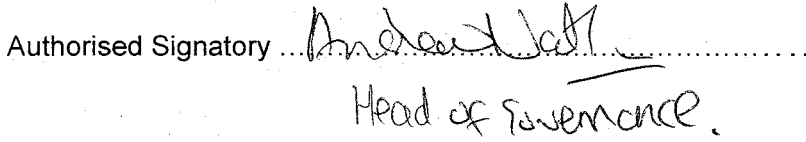 Authorised Signatory ... Andrew
Head of Governance.